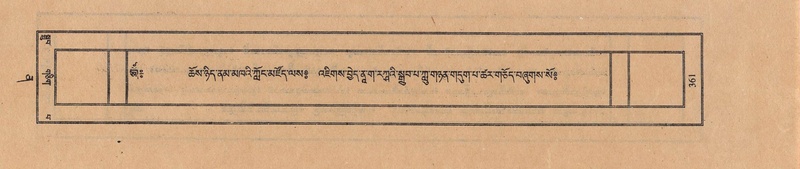 ཆོས་ཉིད་ནམ་མཁའི་ཀློང་མཛོད་ལས༔ འཇིགས་བྱེད་ནཱ་ག་རཀྵའི་སྒྲུབ་པ་ཀླུ་གཉན་གདུག་པ་ཚར་གཅོད་བཞུགས་སོ༔
361